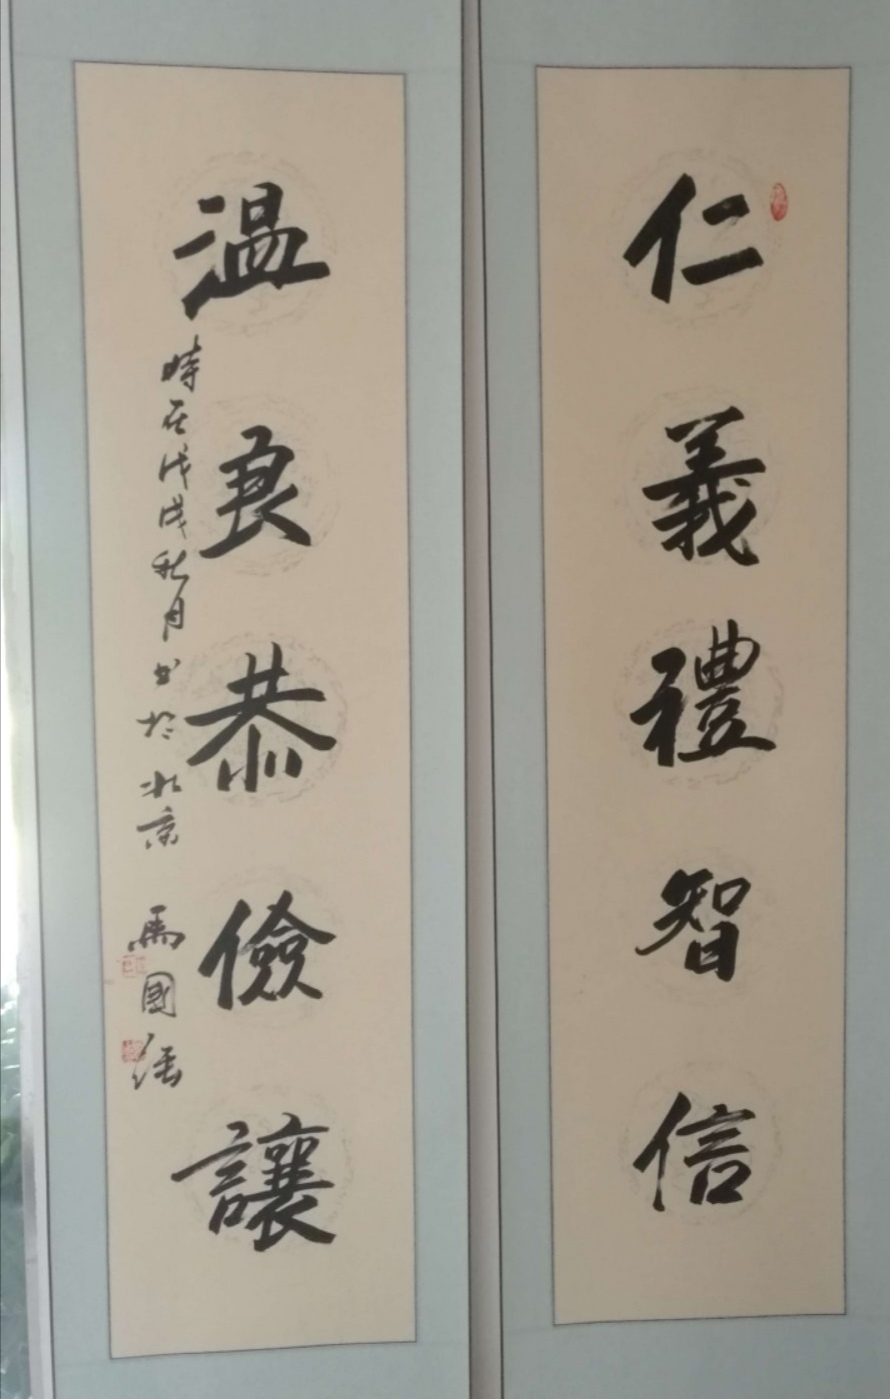 仁義禮智信
温良恭儉讓
時在戊戌秋月书於北京 馬國